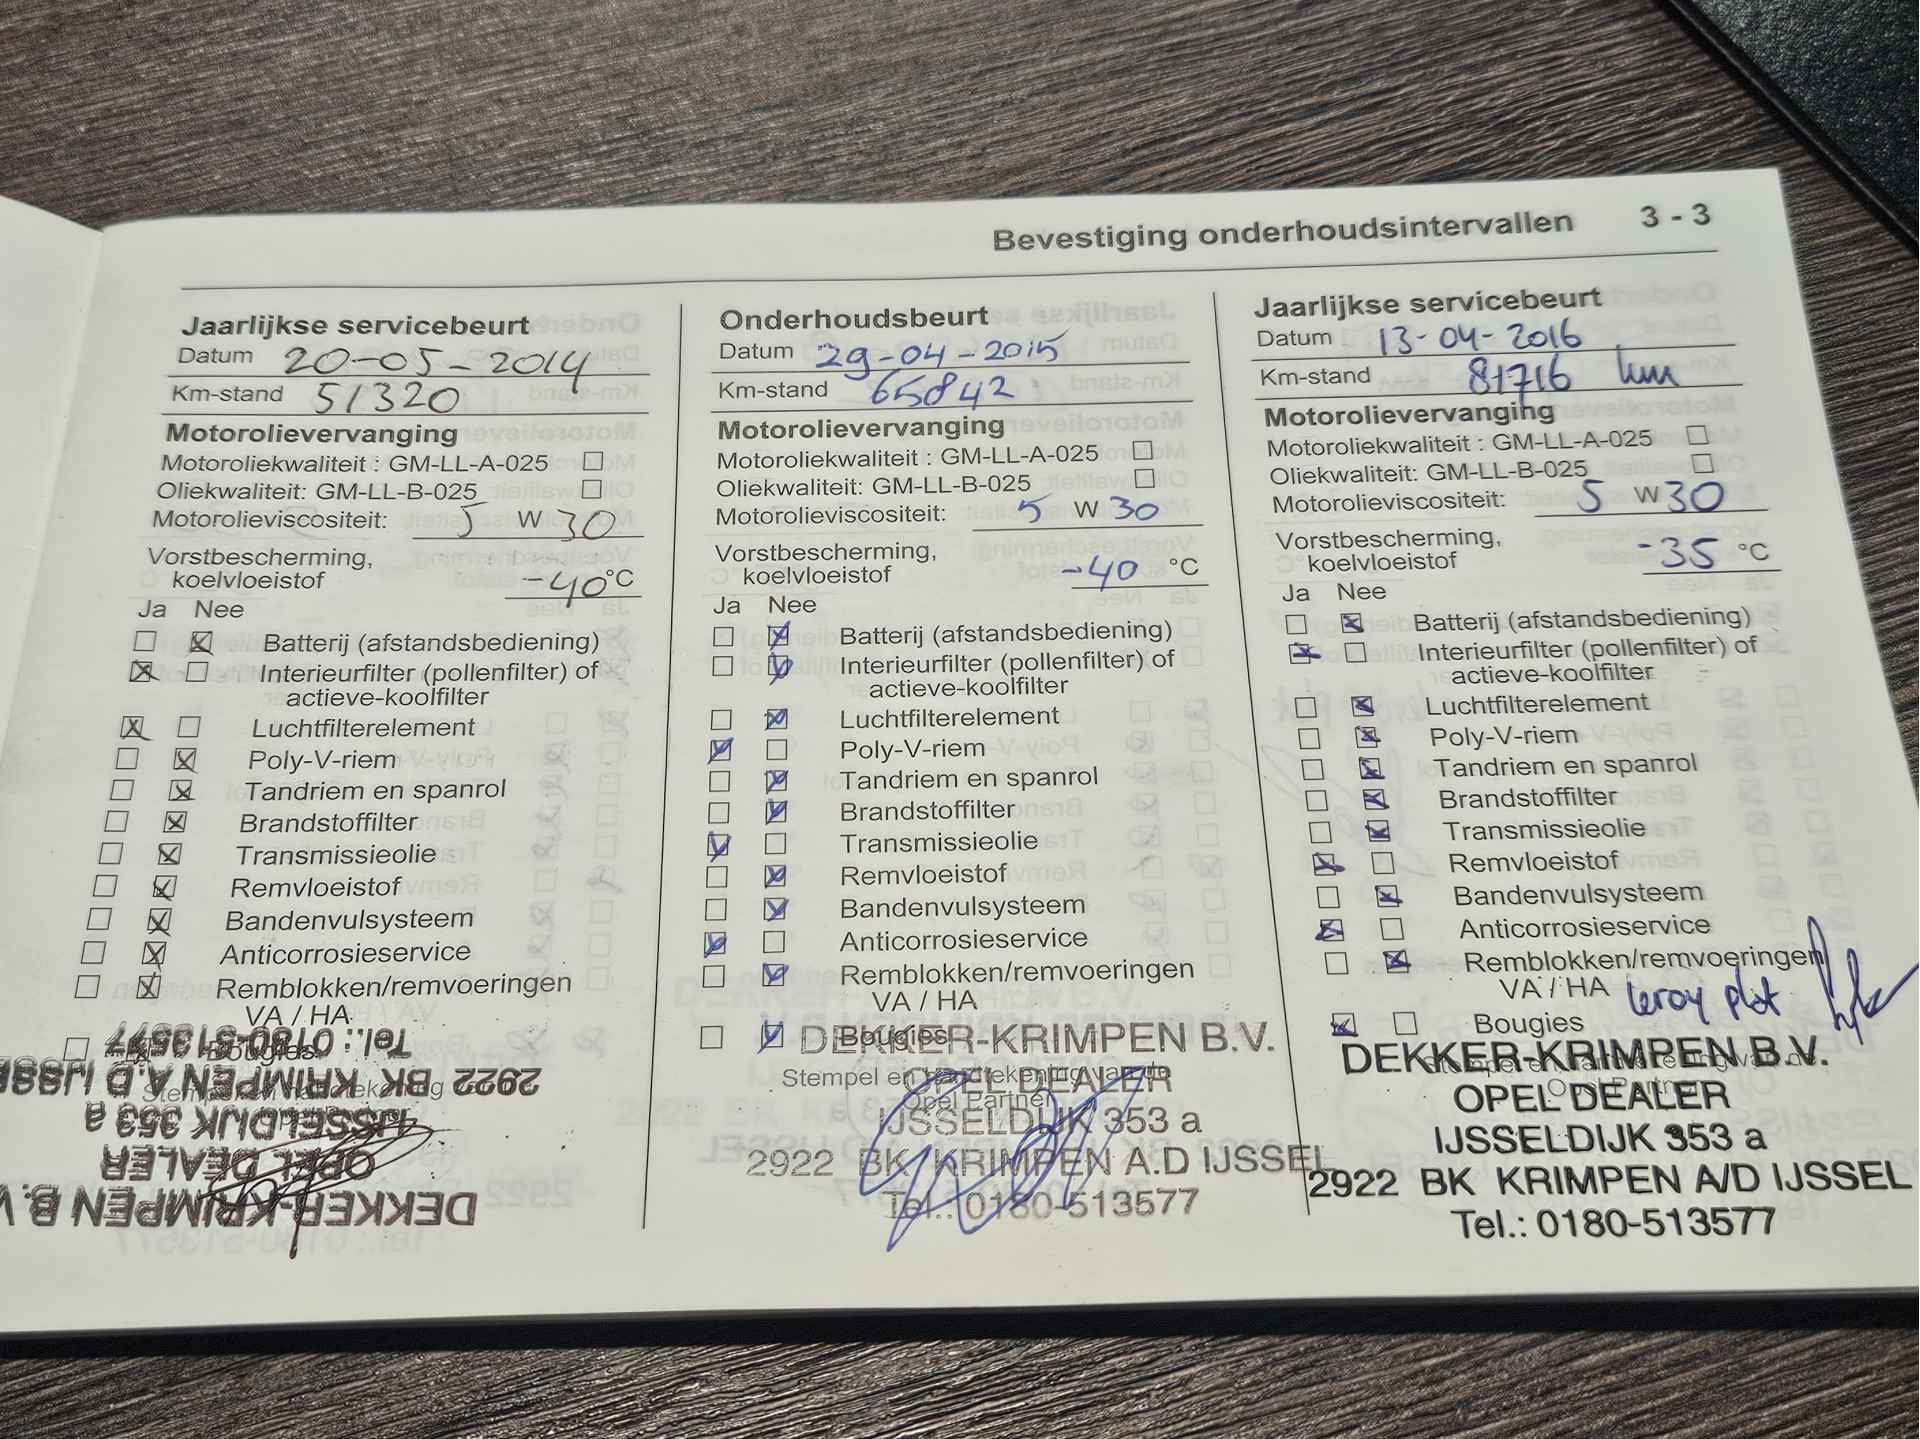 Bevestiging onderhoudsintervallen 3 - 3
Jaarlijkse servicebeurt
Datum 20-05-2014
Km-stand 51320
Motorolievervanging
Motoroliekwaliteit : GM-LL-A-025
Oliekwaliteit: GM-LL-B-025
Motorolieviscositeit: 5 W 30
Vorstbescherming,
koelvloeistof -40 °C
Ja Nee
Batterij (afstandsbediening)
Interieurfilter (pollenfilter) of
actieve-koolfilter
Luchtfilterelement
Poly-V-riem
Tandriem en spanrol
Brandstoffilter
Transmissieolie
Remvloeistof
Bandenvulsysteem
Anticorrosieservice
Remblokken/remvoeringen
VA / HA
Bougies
DEKKER-KRIMPEN B.V.
OPEL DEALER
IJSSELDIJK 353 a
2922 BK KRIMPEN A.D IJSSEL
Tel.: 0180-513577
Onderhoudsbeurt
Datum 29-04-2015
Km-stand 65842
Motorolievervanging
Motoroliekwaliteit : GM-LL-A-025
Oliekwaliteit: GM-LL-B-025
Motorolieviscositeit: 5 W 30
Vorstbescherming,
koelvloeistof -40 °C
Ja Nee
Batterij (afstandsbediening)
Interieurfilter (pollenfilter) of
actieve-koolfilter
Luchtfilterelement
Poly-V-riem
Tandriem en spanrol
Brandstoffilter
Transmissieolie
Remvloeistof
Bandenvulsysteem
Anticorrosieservice
Remblokken/remvoeringen
VA / HA
Bougies
Stempel en handtekening van de
Opel Partner
DEKKER-KRIMPEN B.V.
OPEL DEALER
IJSSELDIJK 353 a
2922 BK KRIMPEN A.D IJSSEL
Tel.: 0180-513577
Jaarlijkse servicebeurt
Datum 13-04-2016
Km-stand 81716 km
Motorolievervanging
Motoroliekwaliteit : GM-LL-A-025
Oliekwaliteit: GM-LL-B-025
Motorolieviscositeit: 5 W 30
Vorstbescherming,
koelvloeistof -35 °C
Ja Nee
Batterij (afstandsbediening)
Interieurfilter (pollenfilter) of
actieve-koolfilter
Luchtfilterelement
Poly-V-riem
Tandriem en spanrol
Brandstoffilter
Transmissieolie
Remvloeistof
Bandenvulsysteem
Anticorrosieservice
Remblokken/remvoeringen
VA / HA leroy plot
Bougies
DEKKER-KRIMPEN B.V.
OPEL DEALER
IJSSELDIJK 353 a
2922 BK KRIMPEN A/D IJSSEL
Tel.: 0180-513577